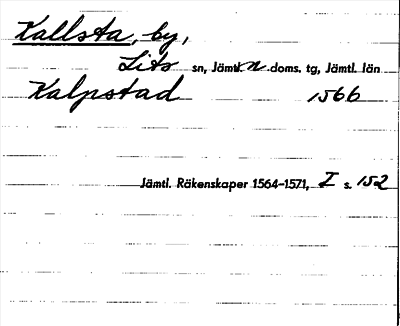 Kallsta, by,
Lits sn, Jämtl. n. doms. tg, Jämtl. län
Kalpstad 1566
Jämtl. Räkenskaper 1564-1571, I s. 152